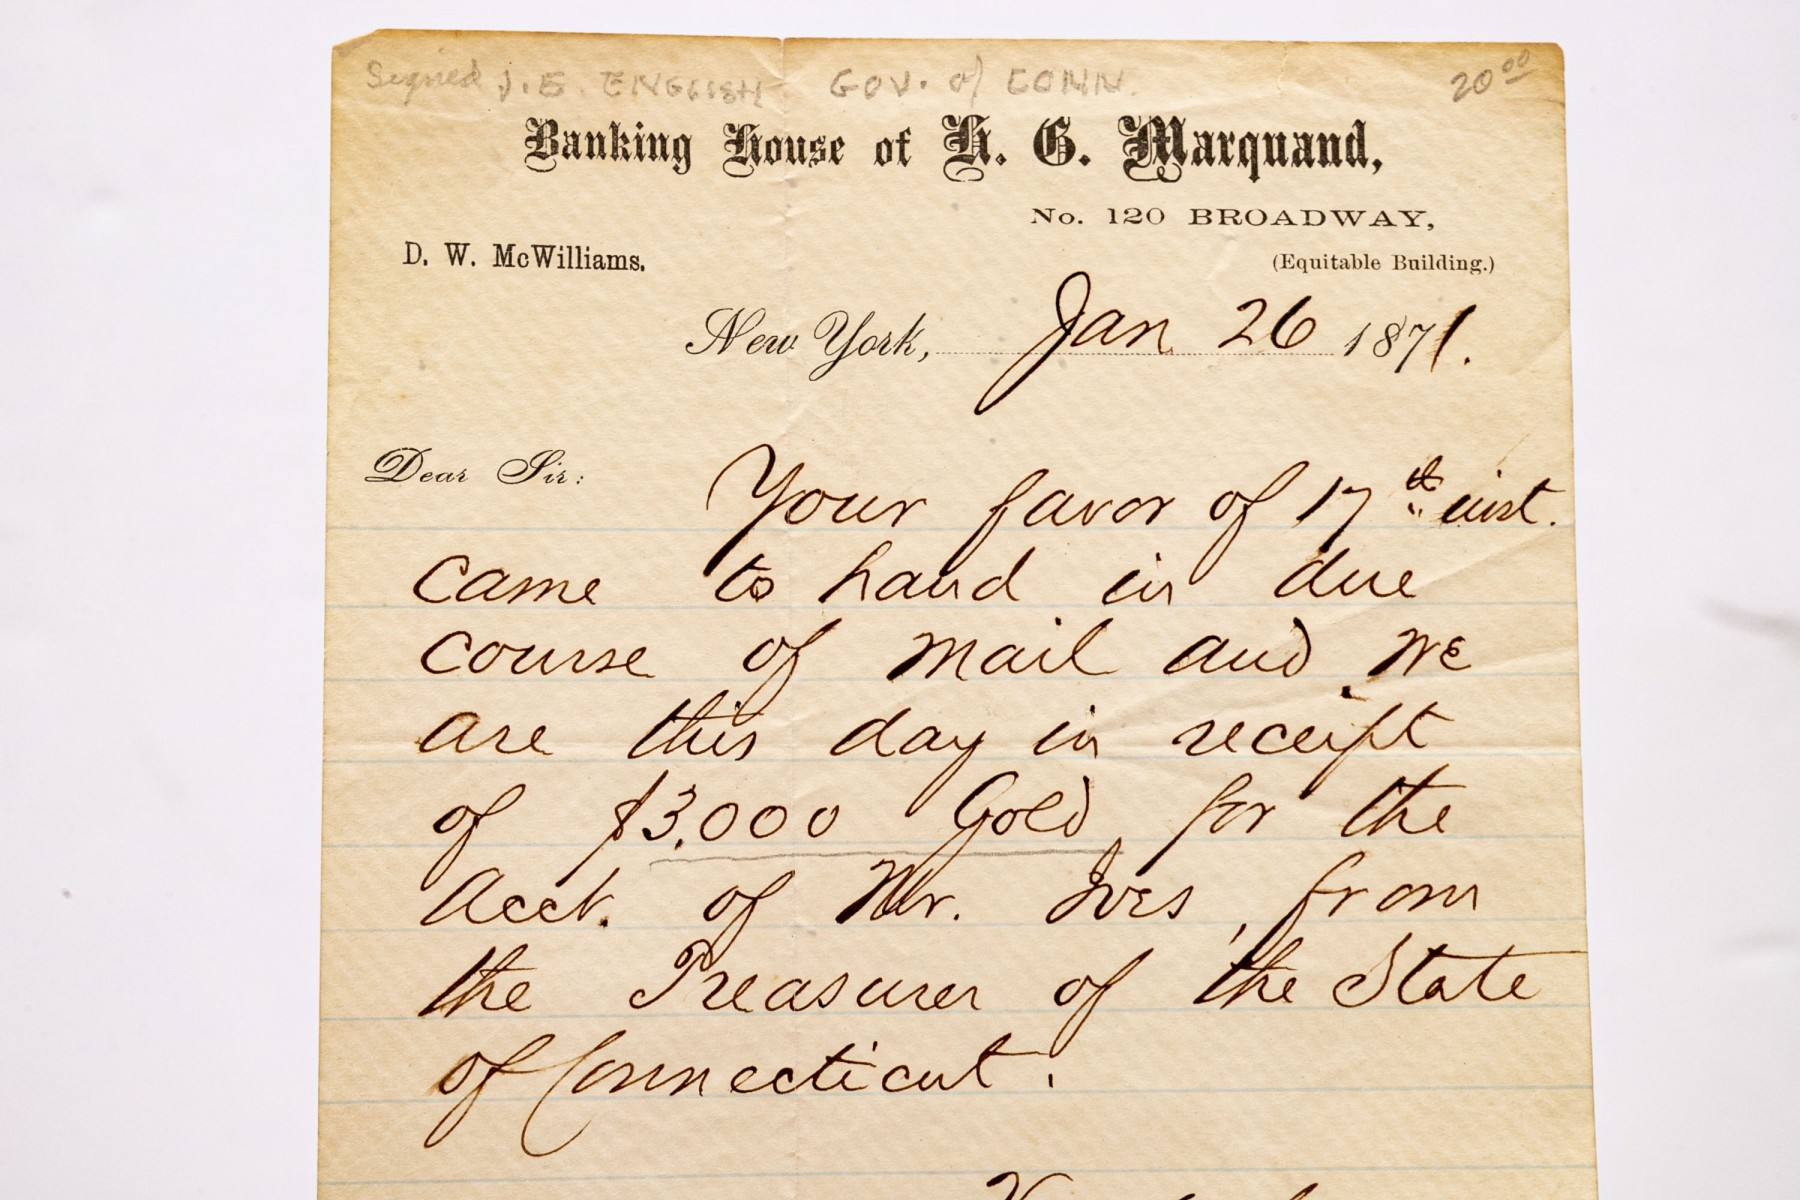 Signed J. E. ENGLISH. GOV. of CONN. 20⁰⁰
Banking House of H. G. Marquand,
No. 120 BROADWAY,
D. W. McWilliams. (Equitable Building.)
New York, Jan 26 1871.
Dear Sir: Your favor of 17th inst.
came to hand in due
course of mail and we
are this day in receipt
of $3,000 Gold, for the
Acct. of Mr. Ives, from
the Treasurer of the State
of Connecticut.